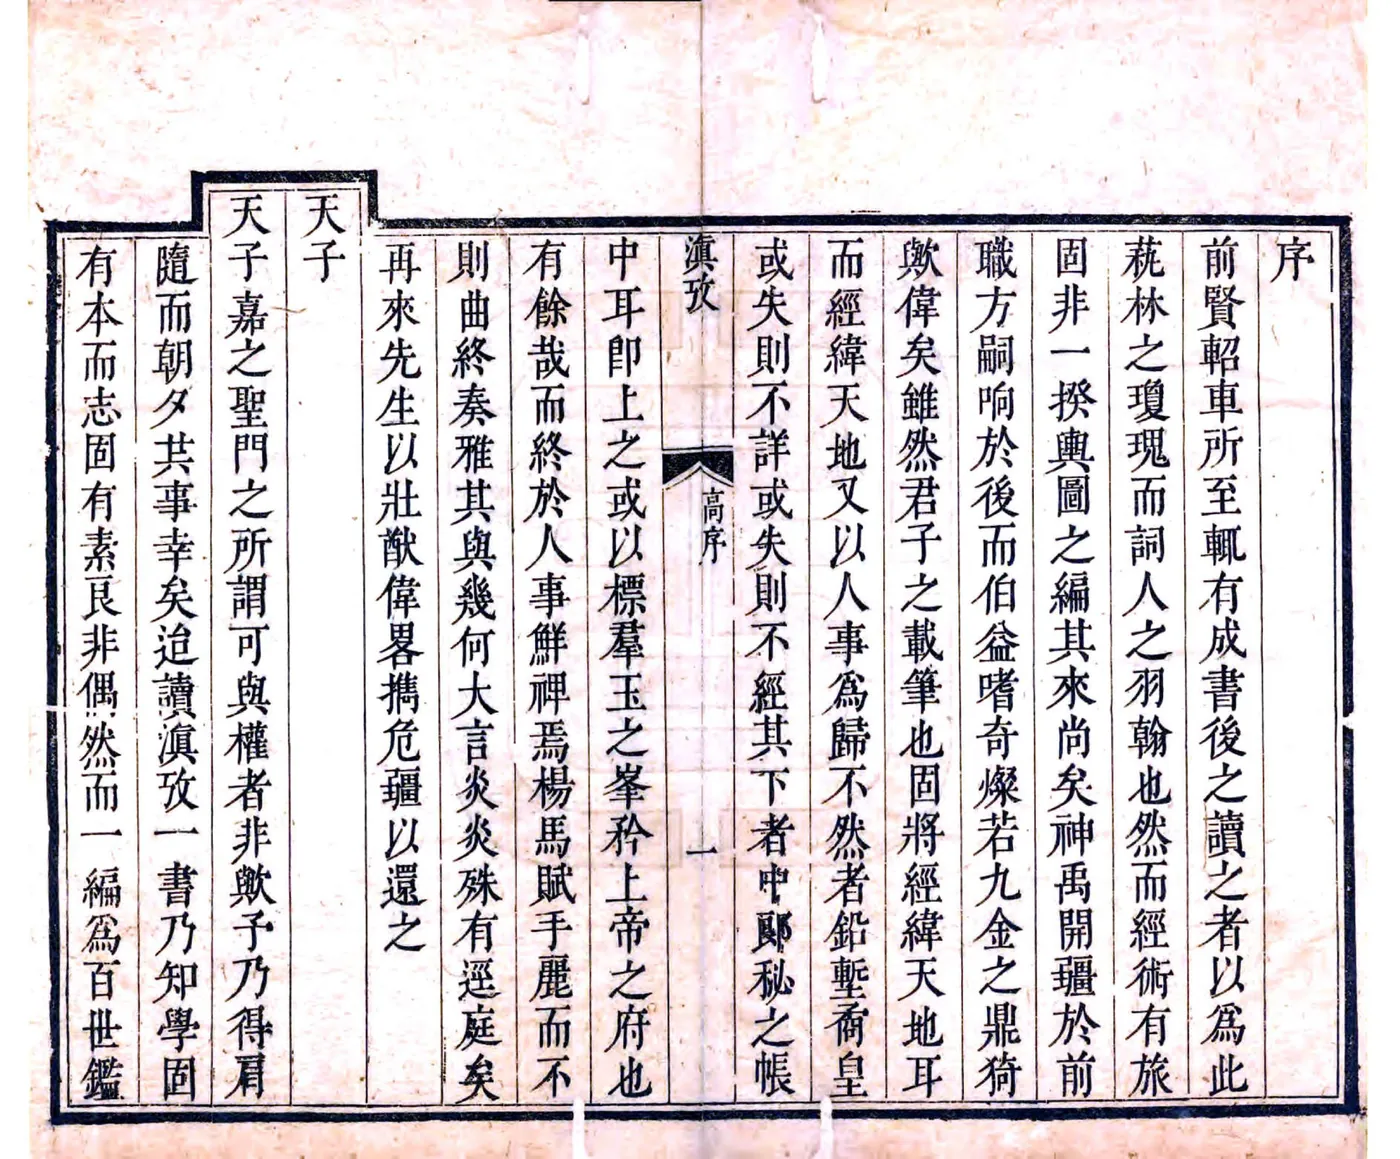 序
前賢軺車所至輒有成書後之讀之者以爲此
蓺林之瓊瑰而詞人之羽翰也然而經術有旅
固非一揆輿圖之編其來尚矣神禹開疆於前
職方嗣响於後而伯益嗜奇燦若九金之鼎猗
歟偉矣雖然君子之載筆也固將經緯天地耳
而經緯天地又以人事爲歸不然者鉛塹矞皇
或失則不詳或失則不經其下者中郎秘之帳
滇攷
高序
一
中耳卽上之或以標羣玉之峯矜上帝之府也
有餘哉而終於人事鮮裨焉楊馬賦手麗而不
則曲終奏雅其與幾何大言炎炎殊有逕庭矣
再來先生以壯猷偉畧擕危疆以還之
天子
天子嘉之聖門之所謂可與權者非歟予乃得肩
隨而朝夕共事幸矣迨讀滇攷一書乃知學固
有本而志固有素良非偶然而一編爲百世鑑